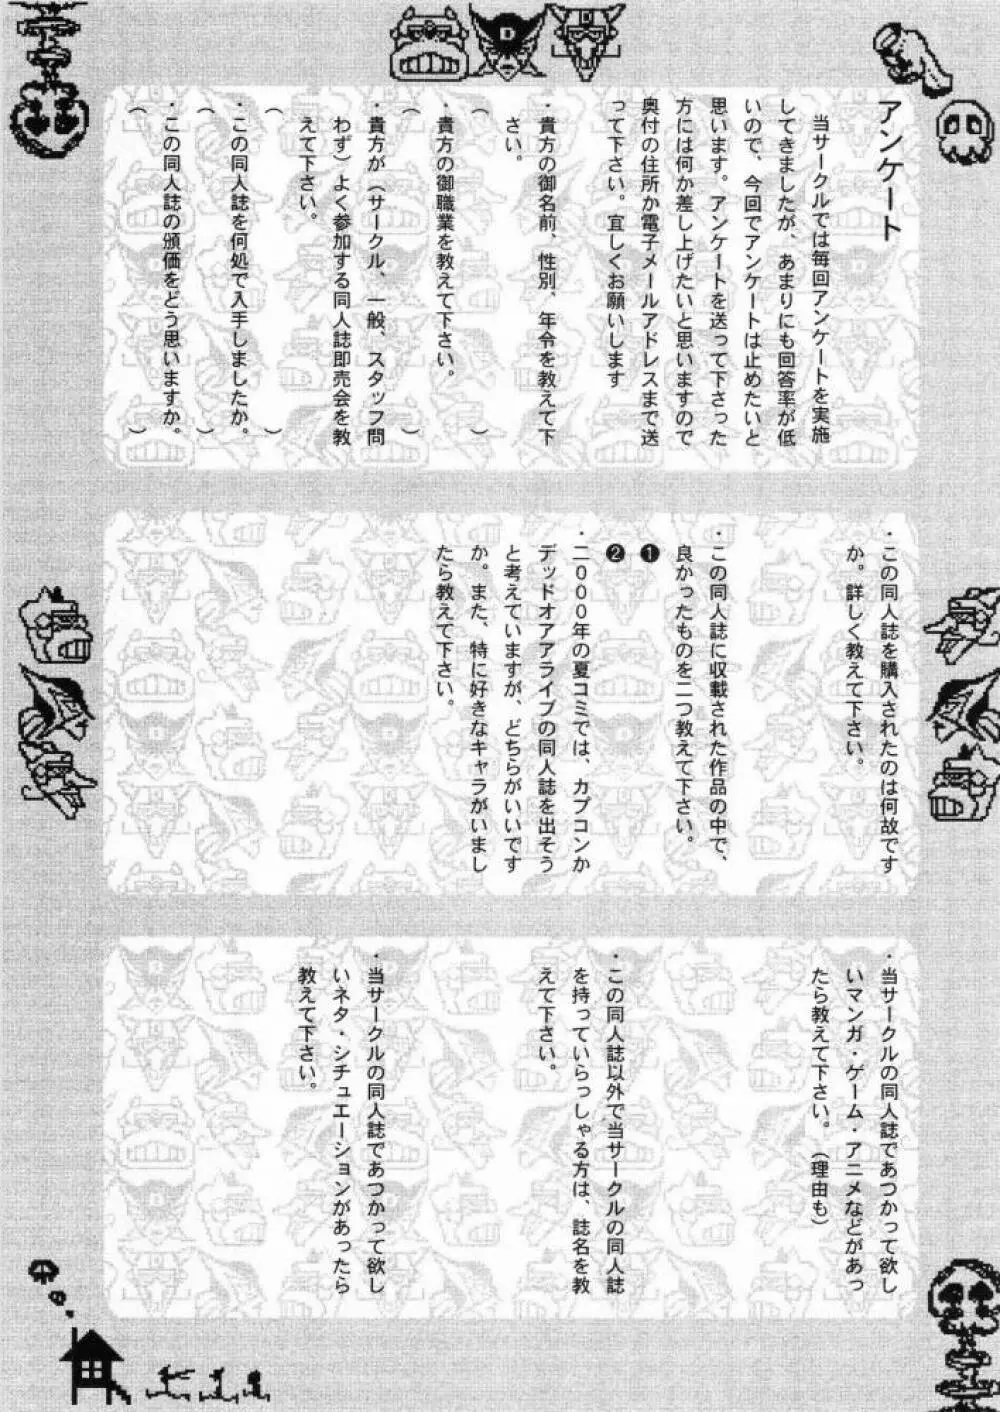 アンケート
当サークルでは毎回アンケートを実施
してきましたが、あまりにも回答率が低
いので、今回でアンケートは止めたいと
思います。アンケートを送って下さった
方には何か差し上げたいと思いますので
奥付の住所か電子メールアドレスまで送
って下さい。宜しくお願いします
・貴方の御名前、性別、年令を教えて下
さい。
（　　　）
・貴方の御職業を教えて下さい。
（　　　）
・貴方が（サークル、一般、スタッフ問
わず）よく参加する同人誌即売会を教
えて下さい。
（　　　）
・この同人誌を何処で入手しましたか。
（　　　）
・この同人誌の頒価をどう思いますか。
（　　　）
・この同人誌を購入されたのは何故です
か。詳しく教えて下さい。
・この同人誌に収載された作品の中で、
良かったものを二つ教えて下さい。
❶
❷
・二000年の夏コミでは、カプコンか
デッドオアアライブの同人誌を出そう
と考えていますが、どちらがいいです
か。また、特に好きなキャラがいまし
たら教えて下さい。
・当サークルの同人誌であつかって欲し
いマンガ・ゲーム・アニメなどがあっ
たら教えて下さい。（理由も）
・この同人誌以外で当サークルの同人誌
を持っていらっしゃる方は、誌名を教
えて下さい。
・当サークルの同人誌であつかって欲し
いネタ・シチュエーションがあったら
教えて下さい。